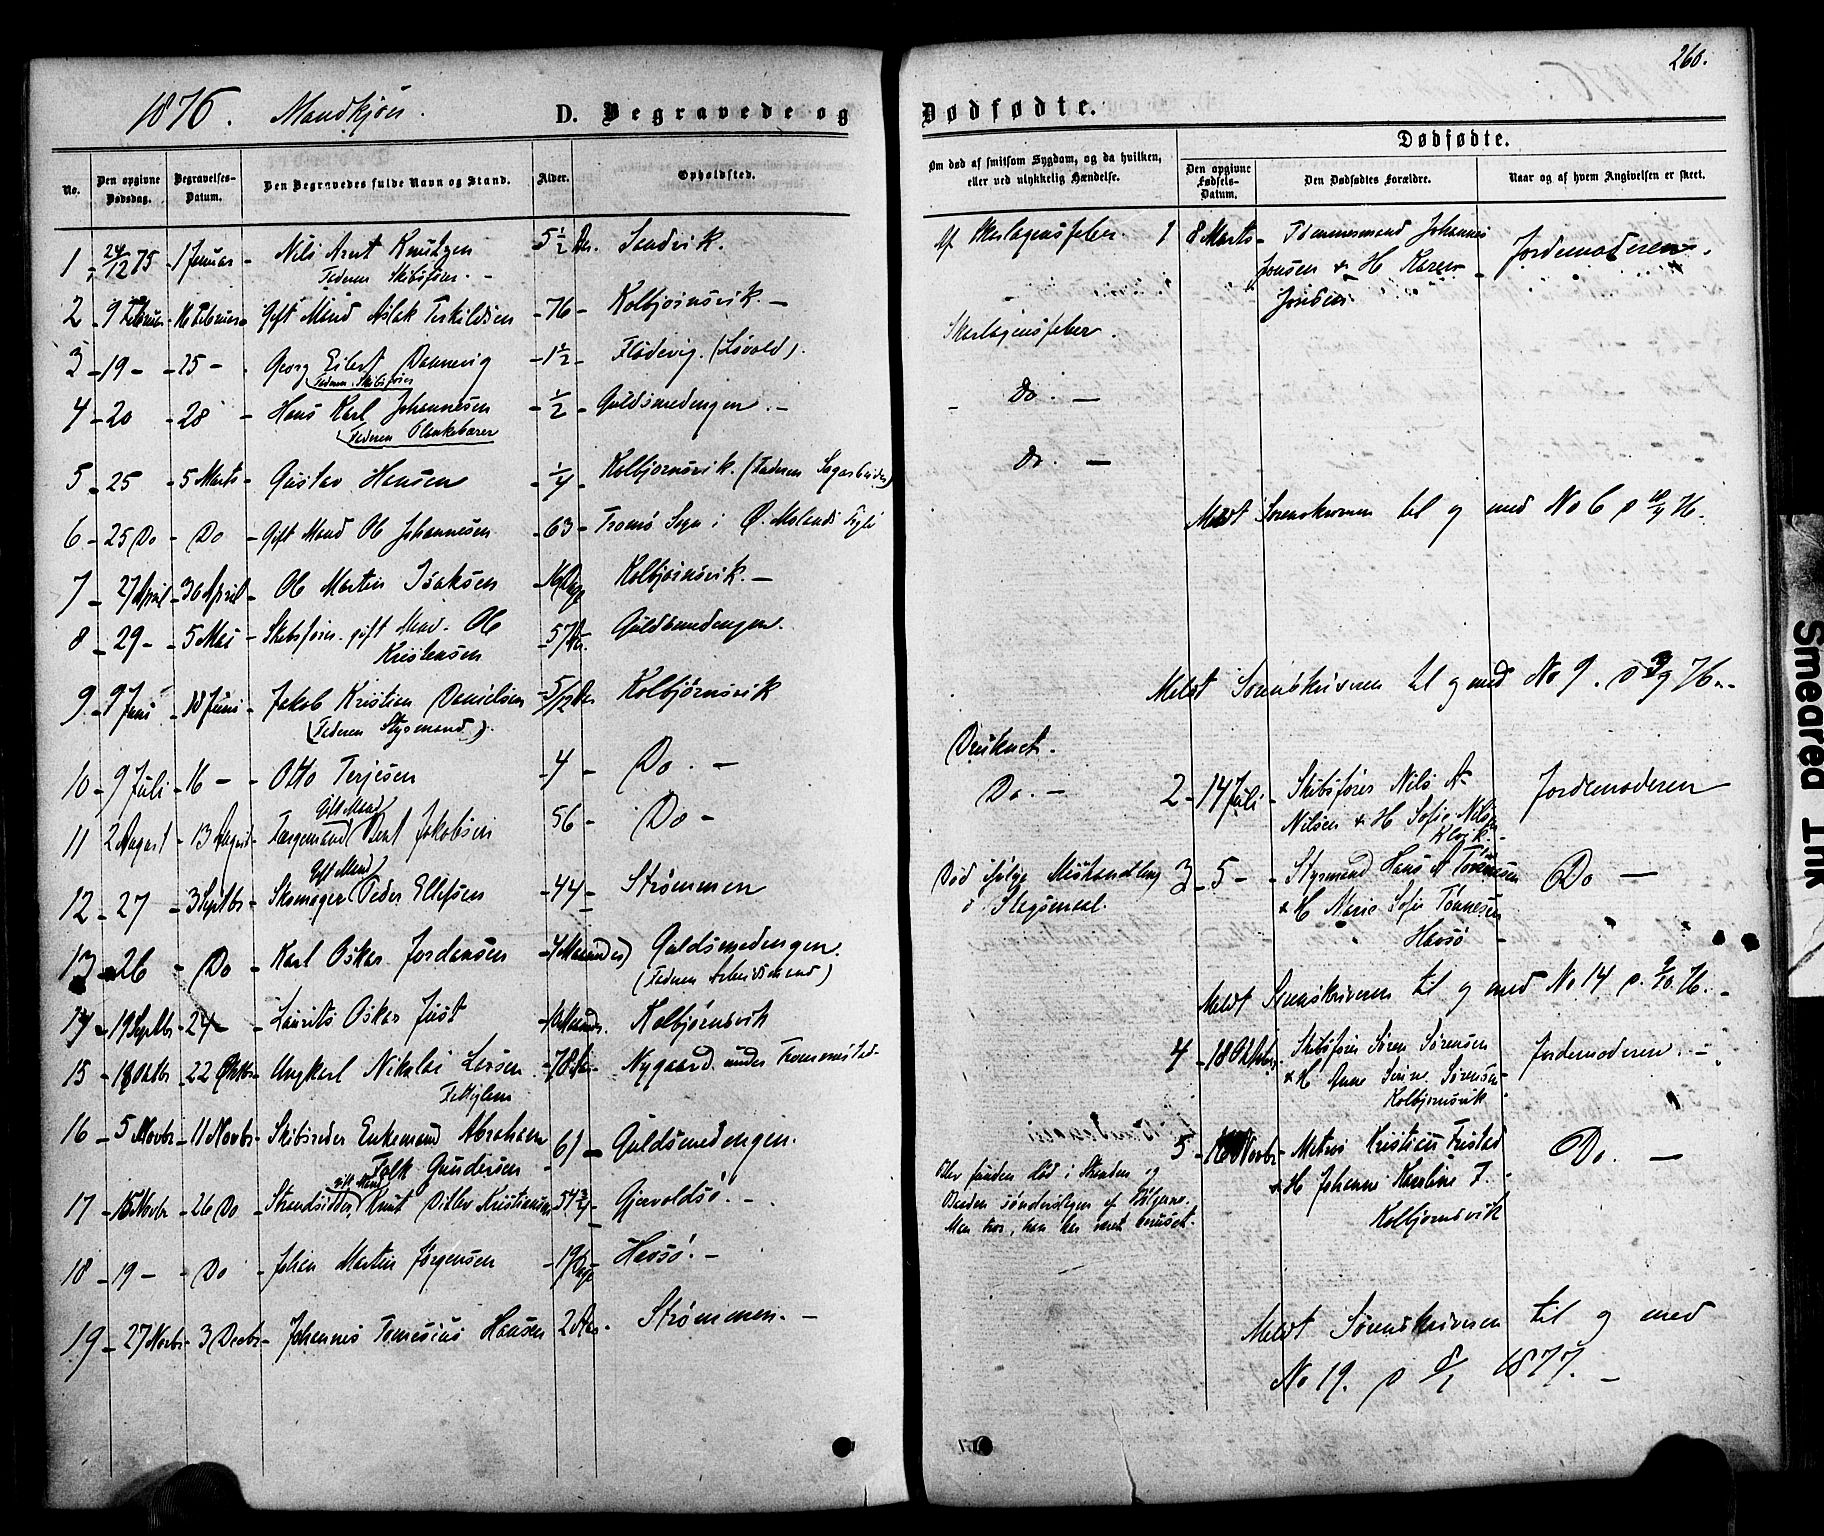 260.
1876. Mandkjøn. D. Begravede og Dødfødte.
No. Den opgivne Dødsdag. Begravelses-Datum. Den Begravedes fulde Navn og Stand. Alder. Opholdsted.
1 - 24/12 75 - 1 Januar - Nils Arnt Knutzen 5 1/2 Aar. Sandvik.
Faderen Skibsfører. -
2 - 9 Februar - 16 Februar - Gift Mand Aslak Terkildsen - 76 - Kolbjørnsvik. -
3 - 19 - - 25 - - Georg Eilert Dannevig - 1 1/2 - Flødevig.
Faderen Skibsfører
4 - 20 - 28 - Hans Karl Johannesen - 1/2 - Guldsmedengen. -
Faderen Plankebærer
5 - 25 - 5 Marts - Gustav Hansen - 1/4 - Kolbjørnsvik. (Faderen Sagarbeider)
6 - 25 Do - Do - Gift Mand Ole Johannesen - 63 - Tromø Sogn i Ø. Molands
7 - 27 April - 30 April - Ole Martin Isaksen - Dage Kolbjørnsvik. -
8 - 29 - - 5 Mai - Skibsfører gift Ole - 57 Aar. Guldsmedengen.
Kristensen
9 - 9 Juni - 18 Juni - Jakob Kristian Danielsen - 5/12 Aar Kolbjørnsvik
(Faderen Styrmand).
10 - 9 Juli - 16 - - Otto Terjesen - 4 - Do. -
Gift Mand
11 - 2 August - 13 August - Færgemand Jakobsen 56 - Do -
Gift Mand
12 - 27 - 3 Septbr - Skomager Peder Ellefsen - 44 - Strømmen
13 - 26 - Do - Karl Oskar Jordansen - 4 Maaneder) Guldsmedengen.
(Faderen Arbeidsmand)
14 - 19 Septbr - 24 - - Laurits Oskar Just - Maaneder. Kolbjørnsvik
15 - 18 Oktbr - 22 Oktbr - Ungkarl Nikolai Larsen - 78 Aar - Nygaard under
16 - 5 Novbr - 11 Novbr - Skibsreder Enkemand Abraham - 61 - Guldsmedengen.
Falk Gundersen
gift Mand
17 - 15 Novbr - 26 Do - Strandsidder Knut Ditlev Kristiansen 54 3/4 - Gjervoldsø. -
18 - 19 - - Do - Johan Martin Jørgensen - 19 Dage Havsø. -
19 - 27 Novbr - 3 Decbr - Johannes Tomesius Hansen 2 Aar. Strømmen. -
Om død af smitsom Sygdom, og da hvilken, eller ved ulykkelig Hændelse.
Dødfødte.
Den opgivne Fødsels-Datum. Den Dødfødtes Forældre. Naar og af hvem Angivelsen er skeet.
Af Skarlagensfeber. 1 8 Marts - Tømmermand Johannes Jordemoderen.
Jonsen & H Karen
Jonsen
Skarlagensfeber.
- Do. -
Do. -
Meldt Sorenskriveren til og med No 6 d 10/4 76.
Meldt Sorenskriveren til og med No 9. d 3/9 76. -
Druknet.
Do. - 2 - 14 Juli - Skibsfører Nils A. Jordemoderen
Nilsen & H Sofie Nilsen
Død ifølge Mishandling 3 - 5 - - Styrmand Hans A Tønnesen Do -
i Slagsmaal. & H Marie Sofie Tønnesen
Havsø -
Meldt Sorenskriveren til og med No 14 d. 9/10 76. -
4 - 18 Oktober Skibsfører Søren Sørensen Jordemoderen. -
& H Anne Serine Sørensen
Kolbjørnsvik
5 - 16 Novbr - Matros Kristian Fristad Do. -
Blev funden død i Stranden og & H Johanne Karoline F.
Baaden sønderslagen af Bølgerne. Kolbjørnsvik
Man tror, han har været beruset.
Meldt Sorenskriveren til og med
No 19. d 8/1 1877. -
Smeared Ink